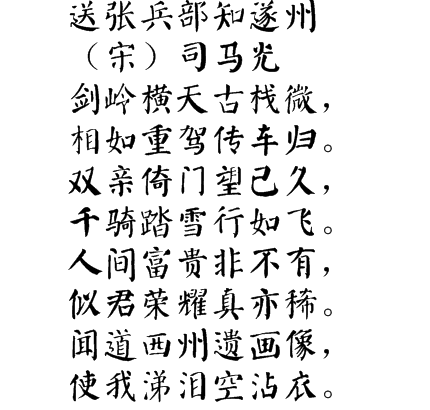 送张兵部知遂州
（宋）司马光
剑岭横天古栈微，
相如重驾传车归。
双亲倚门望已久，
千骑踏雪行如飞。
人间富贵非不有，
似君荣耀真亦稀。
闻道西州遗画像，
使我涕泪空沾衣。